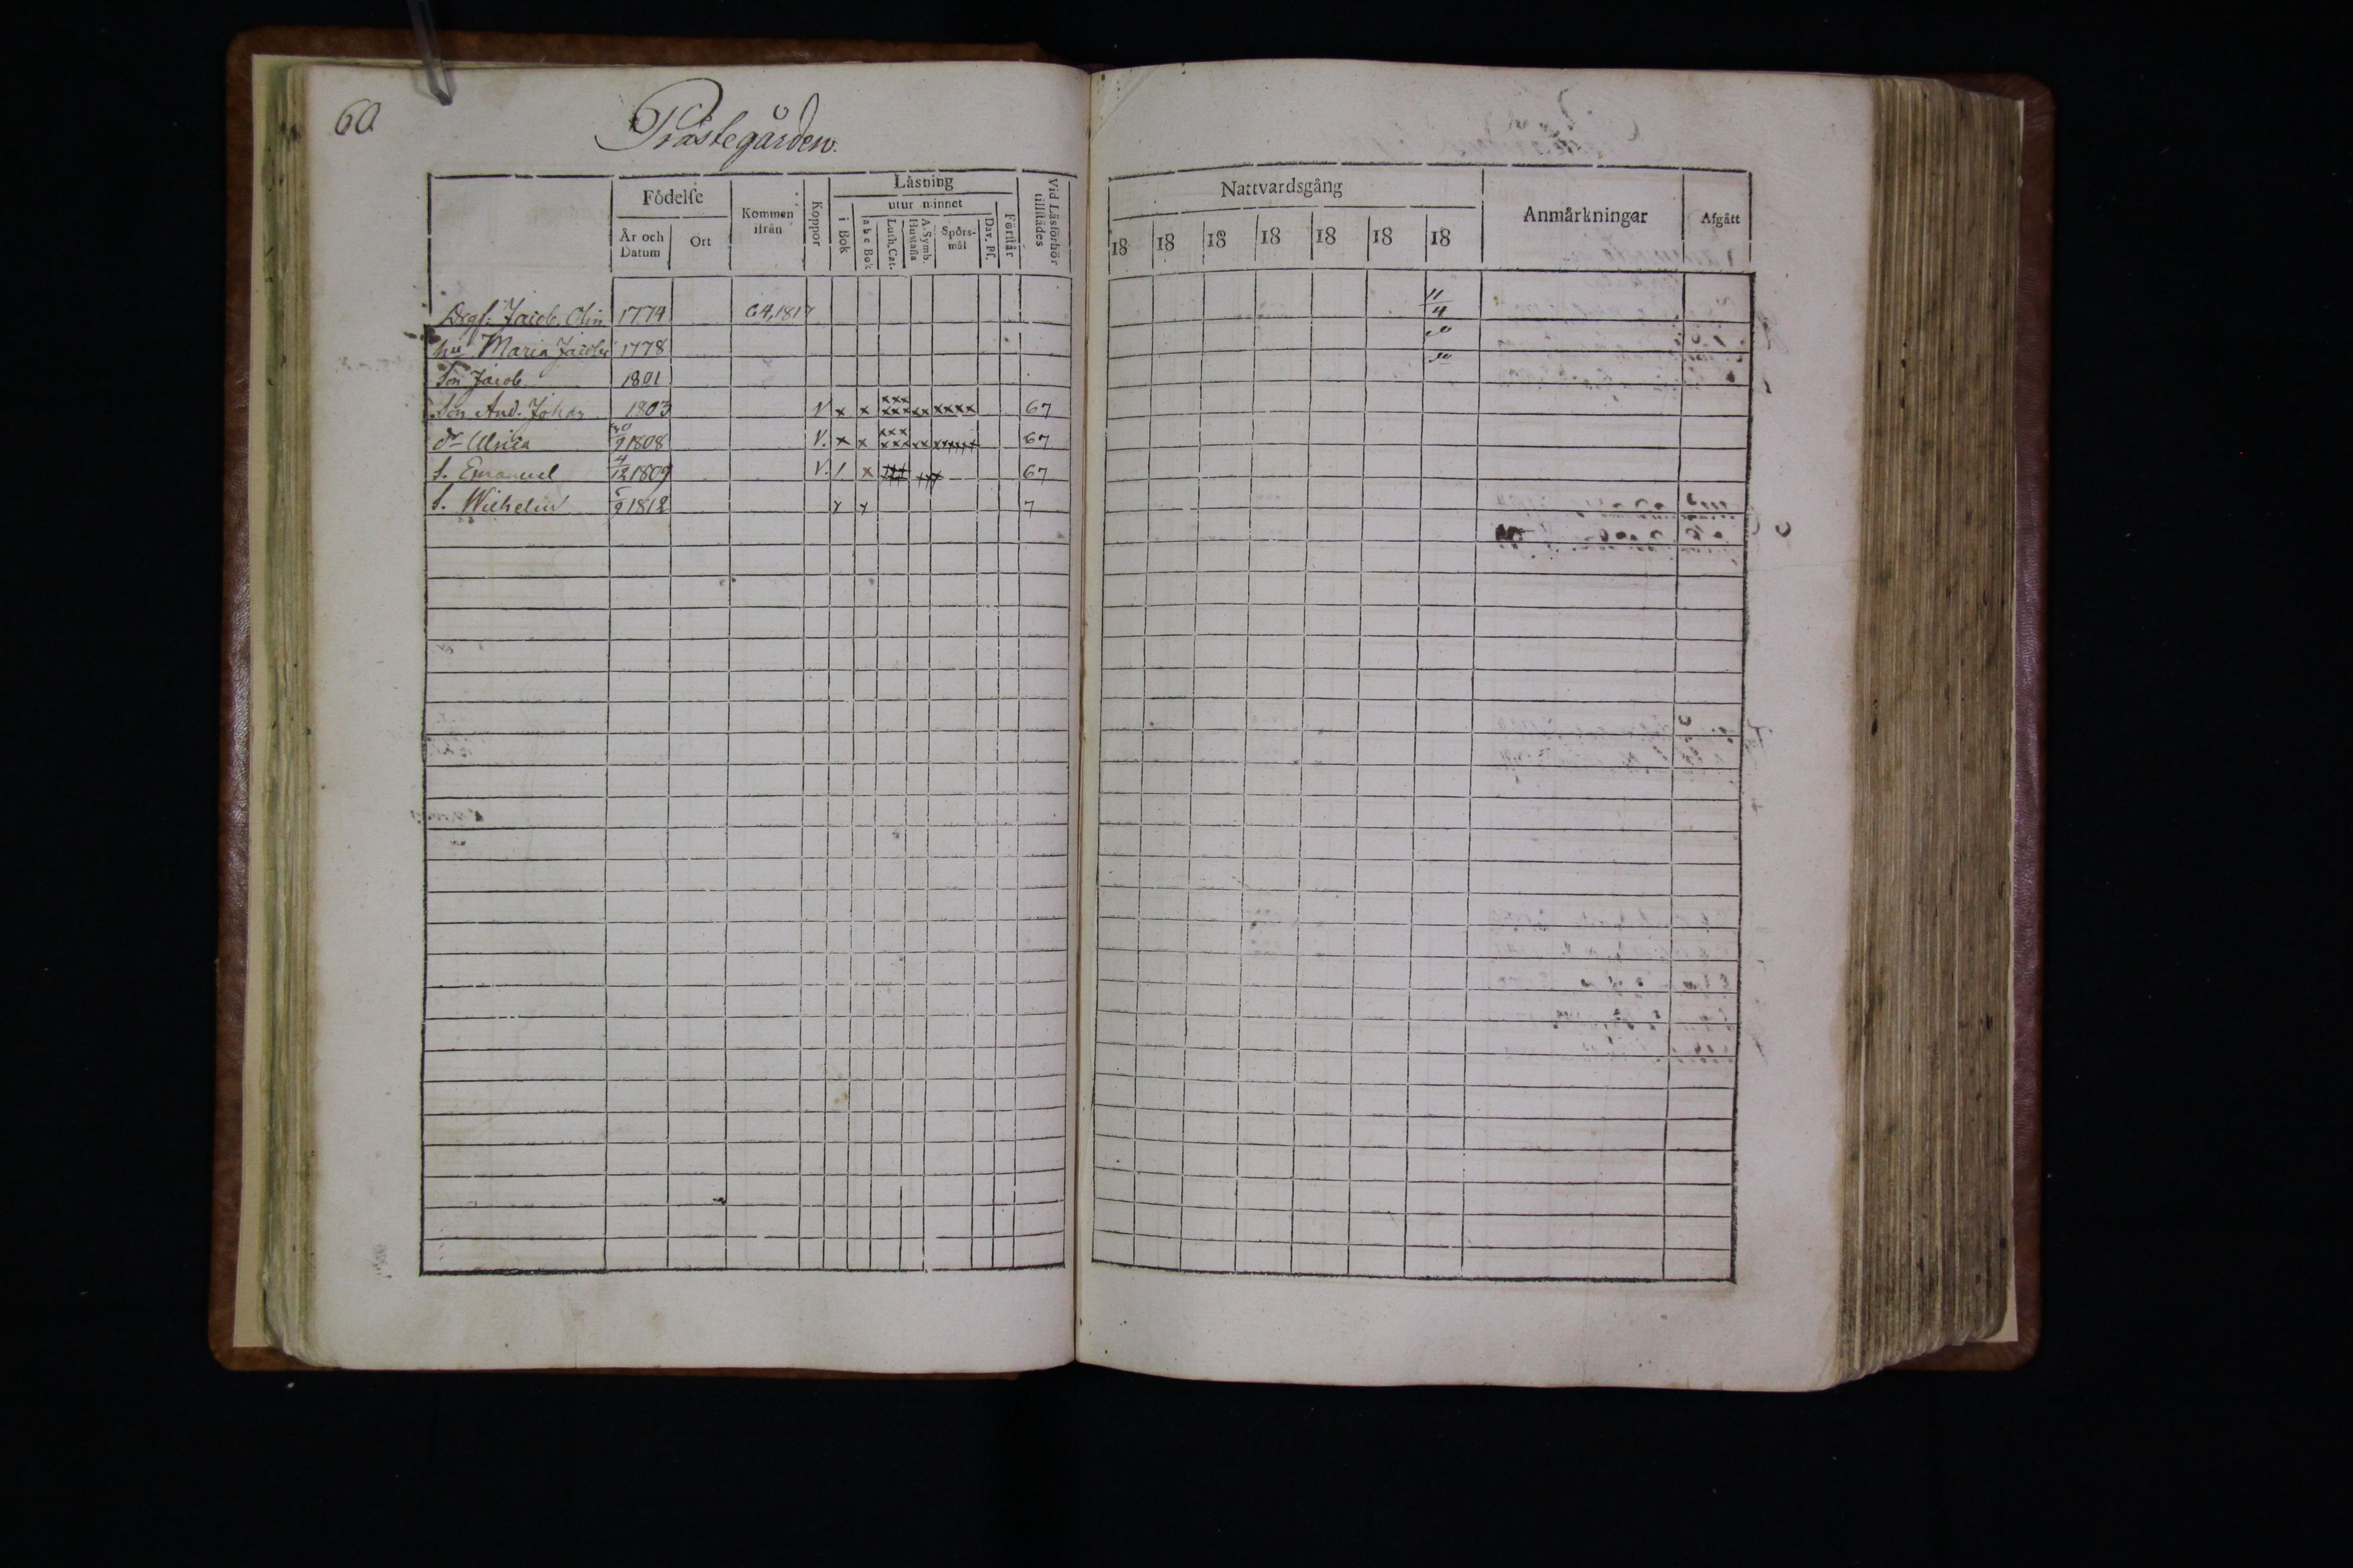 60.
Prästegården.
Födelse
År och Datum
Ort
Kommen ifrån
Koppor
Läsning
utur minnet
i Bok
a b c Bok
Luth. Cat.
A. Symb. Hustafla
Spörsmål
Dav. Ps.
Förstår
Vid Läsförhör tillstädes
Nattvardsgång
18 18 18 18 18 18 18
Anmärkningar
Afgått
Jacob Olin 1774 64,1817 11/4
hu Maria 1778
Son Jacob 1801
Son And. Johan 1803 V x x xxx xxx xx xxxx 67
dr Ulrica 1808 V. x x xxx xxx xx 67
S. Emanuel 4/12 1809 V. / x 67
S. Wilhelm 1812 7